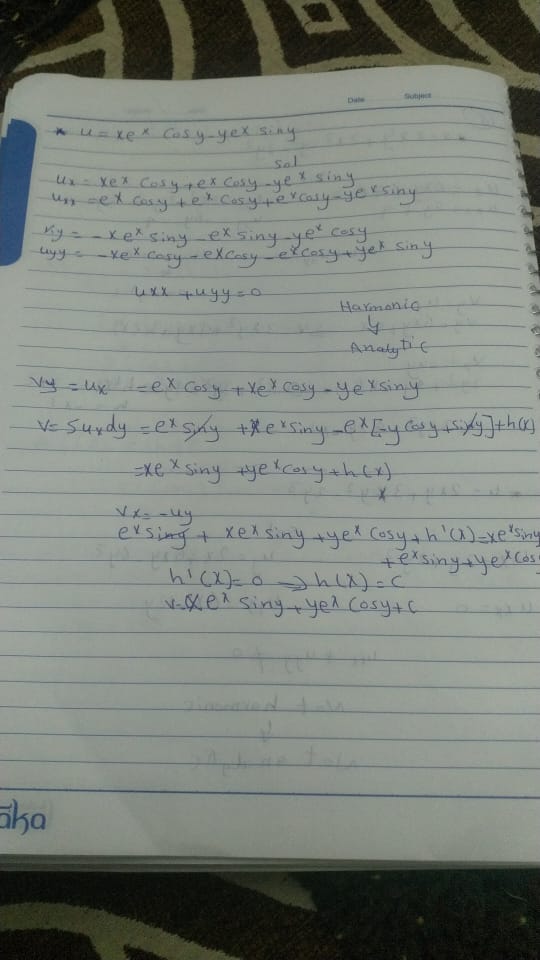 Date Subject
* u = xe^x cosy - ye^x siny
sol
ux = xe^x cosy + e^x cosy - ye^x siny
uxx = e^x cosy + e^x cosy + e^x cosy - ye^x siny
uy = - xe^x siny - e^x siny - ye^x cosy
uyy = - xe^x cosy - e^x cosy - e^x cosy + ye^x siny
uxx + uyy = 0
Harmonic
↳
Analytic
vy = ux = e^x cosy + xe^x cosy - ye^x siny
v = ∫ux dy = e^x siny + xe^x siny - e^x [-y cosy + siny] + h(x)
= xe^x siny + ye^x cosy + h(x)
vx = - uy
e^x siny + xe^x siny + ye^x cosy + h'(x) = xe^x siny
+ e^x siny + ye^x cosy
h'(x) = 0 → h(x) = c
v = xe^x siny + ye^x cosy + c